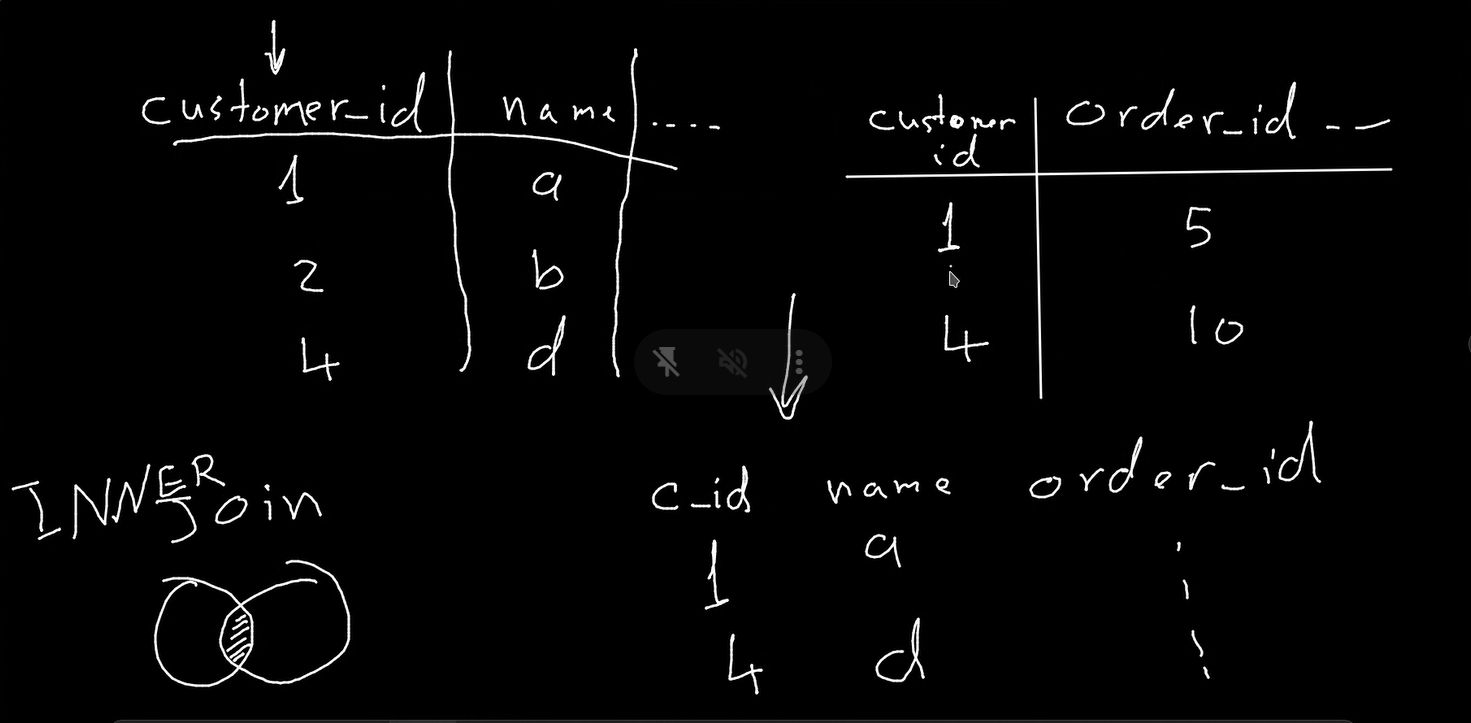 customer_id name ....
1 a
2 b
4 d
customer id order_id --
1 5
4 10
INNER Join
c_id name order_id
1 a
4 d